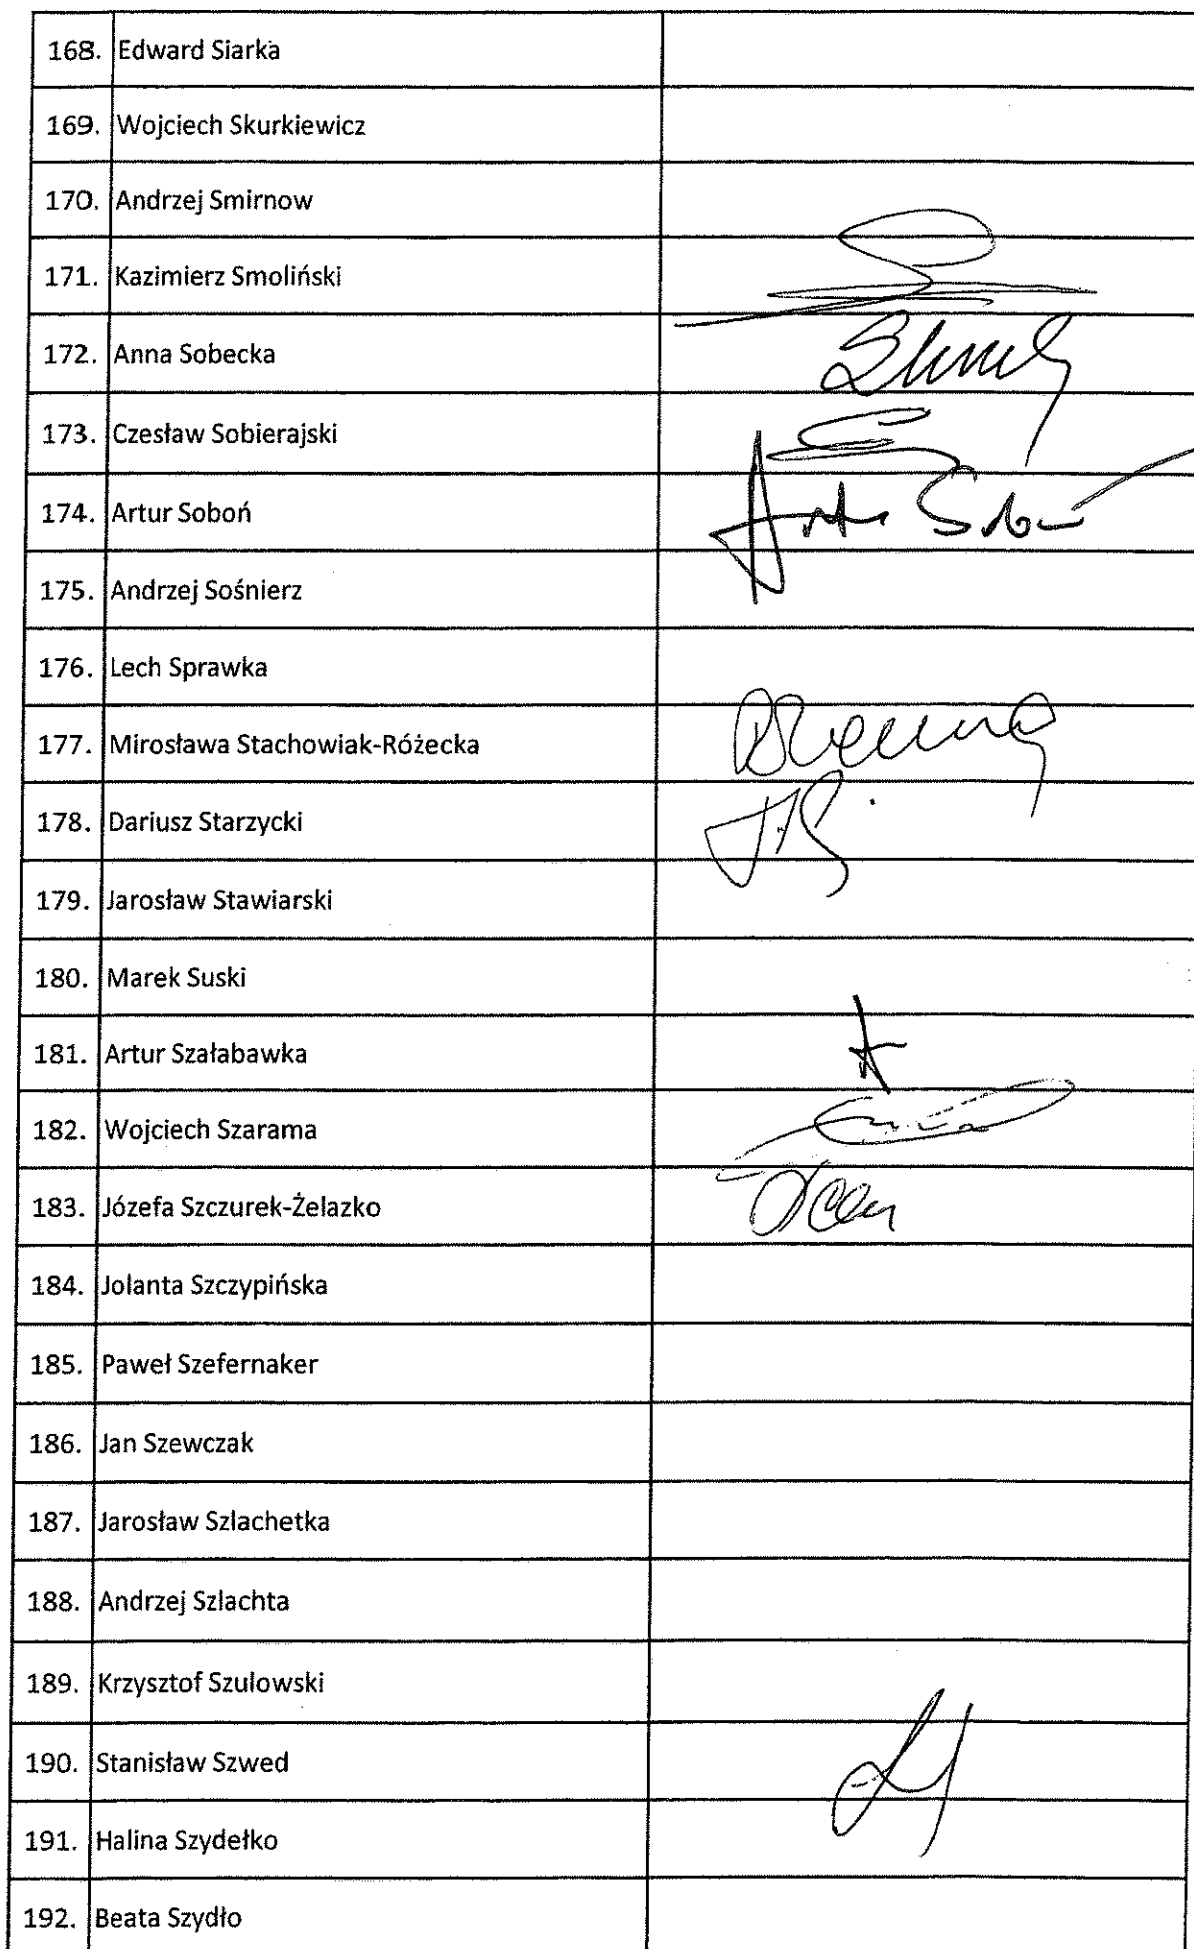 168. Edward Siarka
169. Wojciech Skurkiewicz
170. Andrzej Smirnow
171. Kazimierz Smoliński
172. Anna Sobecka
173. Czesław Sobierajski
174. Artur Soboń
175. Andrzej Sośnierz
176. Lech Sprawka
177. Mirosława Stachowiak-Różecka
178. Dariusz Starzycki
179. Jarosław Stawiarski
180. Marek Suski
181. Artur Szałabawka
182. Wojciech Szarama
183. Józefa Szczurek-Żelazko
184. Jolanta Szczypińska
185. Paweł Szefernaker
186. Jan Szewczak
187. Jarosław Szlachetka
188. Andrzej Szlachta
189. Krzysztof Szulowski
190. Stanisław Szwed
191. Halina Szydełko
192. Beata Szydło